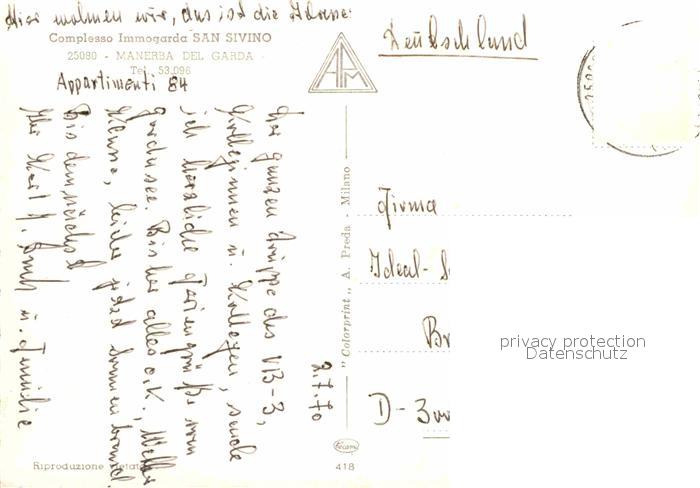 Hier wohnen wir, das ist die Adresse:
Complesso Immogarda SAN SIVINO
25080 - MANERBA DEL GARDA
Tel. 53.096
Appartimenti 84
2.7.70
Der ganzen Gruppe des VB-3,
Kolleginnen u. Kollegen, sende
ich herzliche Feriengrüße vom
Gardasee. Bisher alles o.K., Wetter
Klasse, leider jetzt Sonnenbrand
Bis demnächst
Ihr Karl J. u. Familie
Riproduzione vietata
"Colorprint" A. Preda - Milano
418
Deutschland
Firma
Ideal-S
Br
D-3
privacy protection
Datenschutz